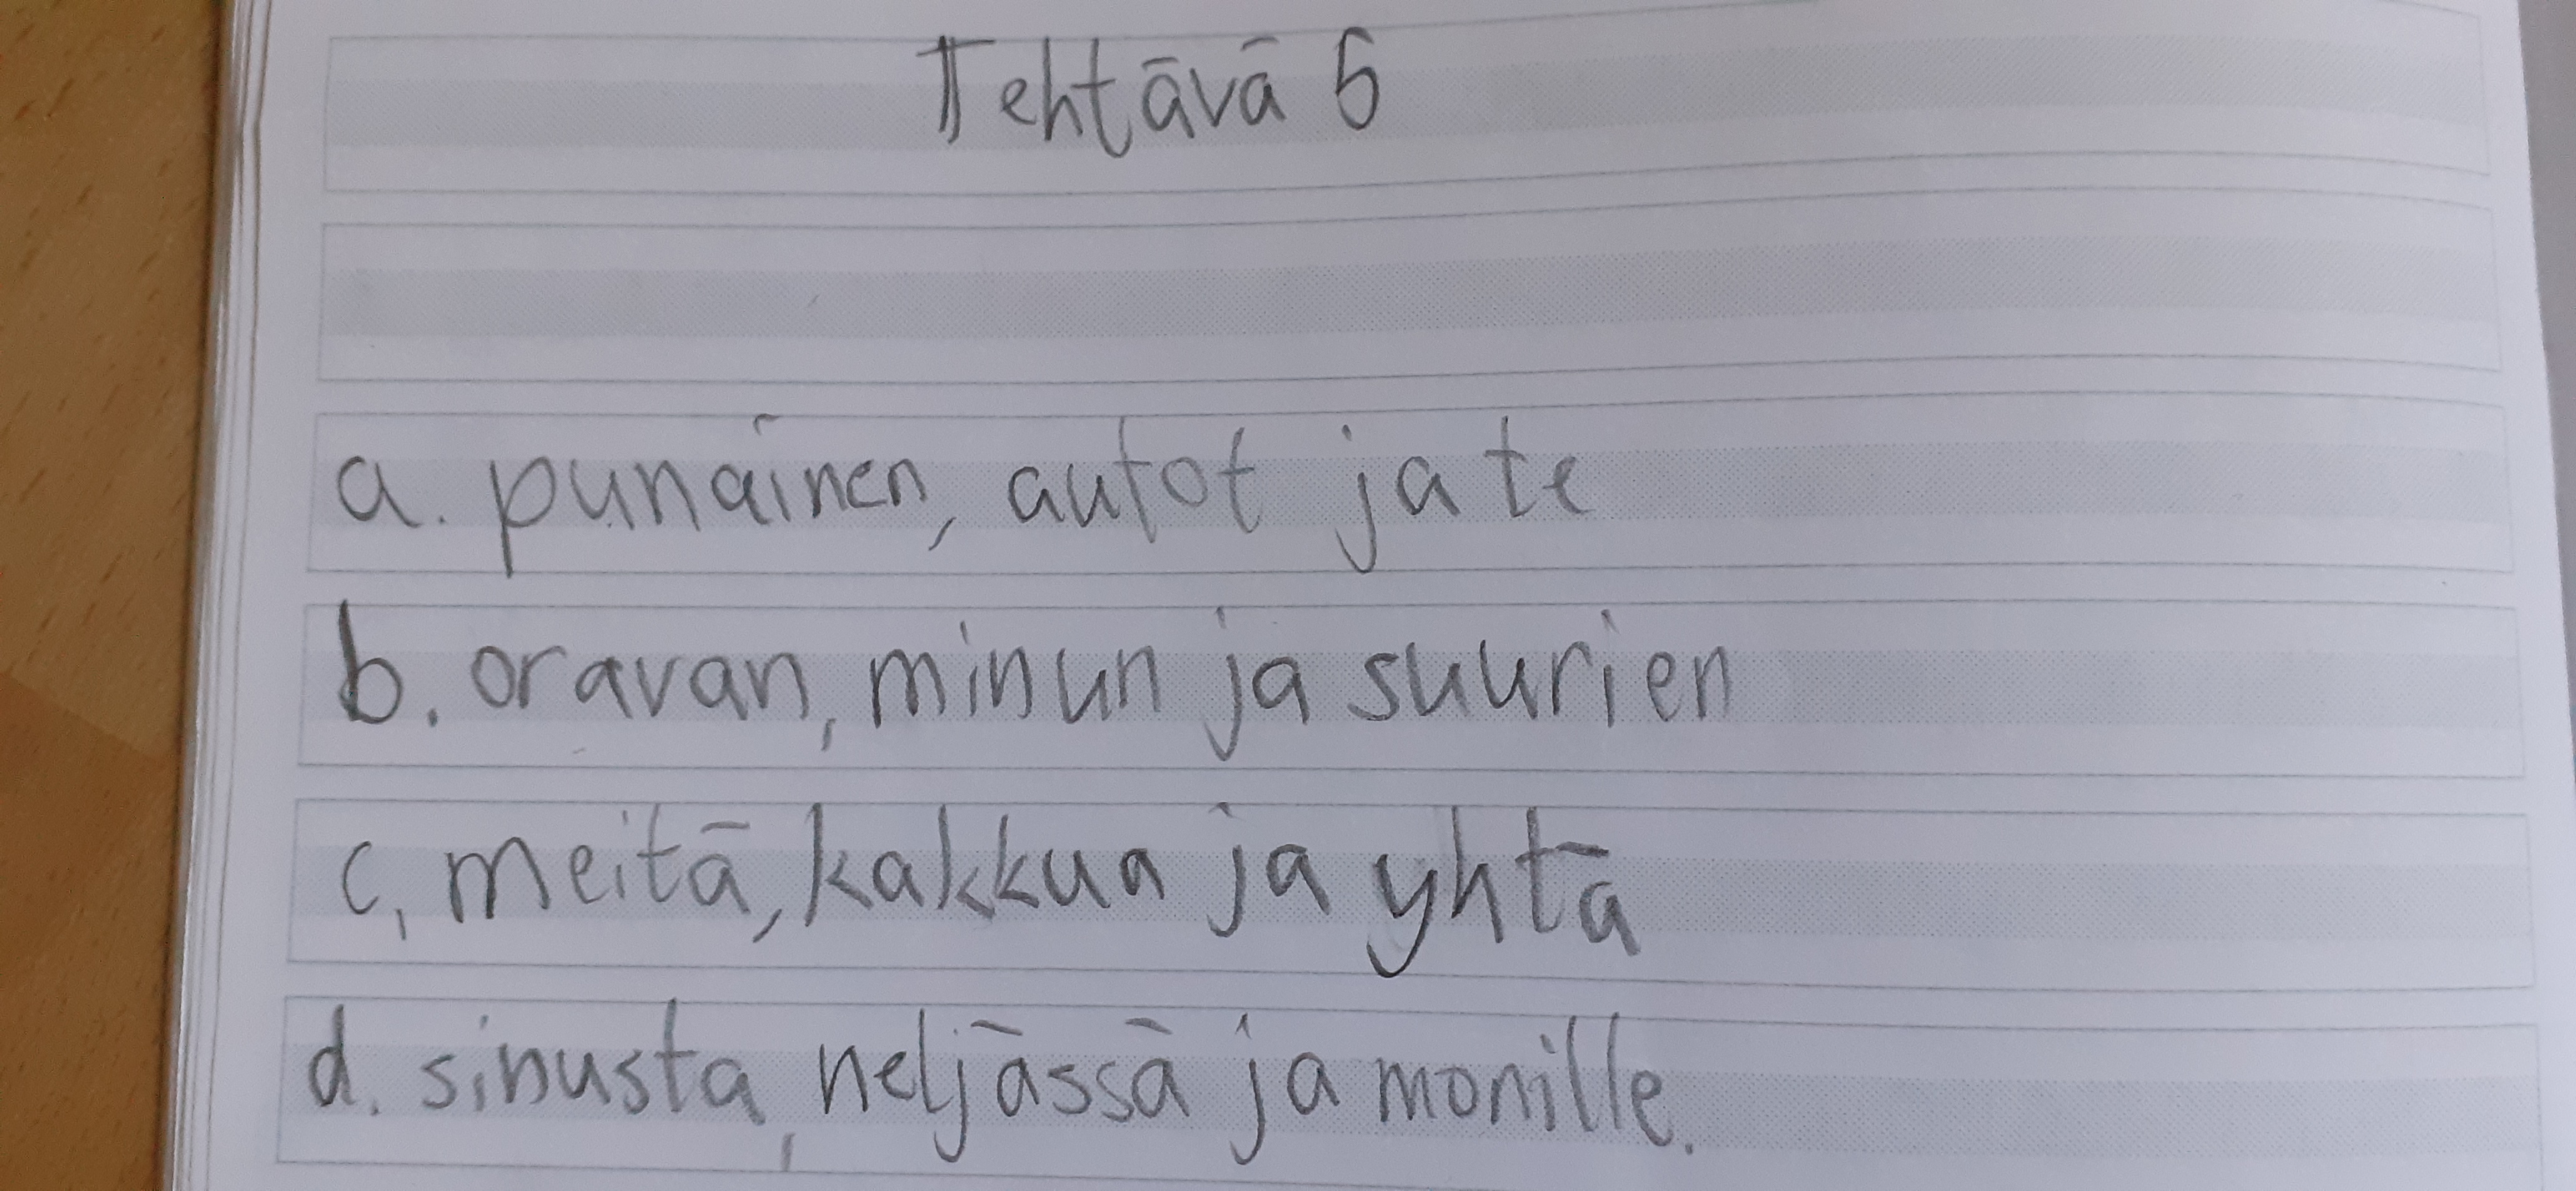 Tehtävä 5
a. punainen, autot ja te
b. oravan, minun ja suurien
c, meitä, kakkua ja yhtä
d. sinusta, neljässä ja monille.